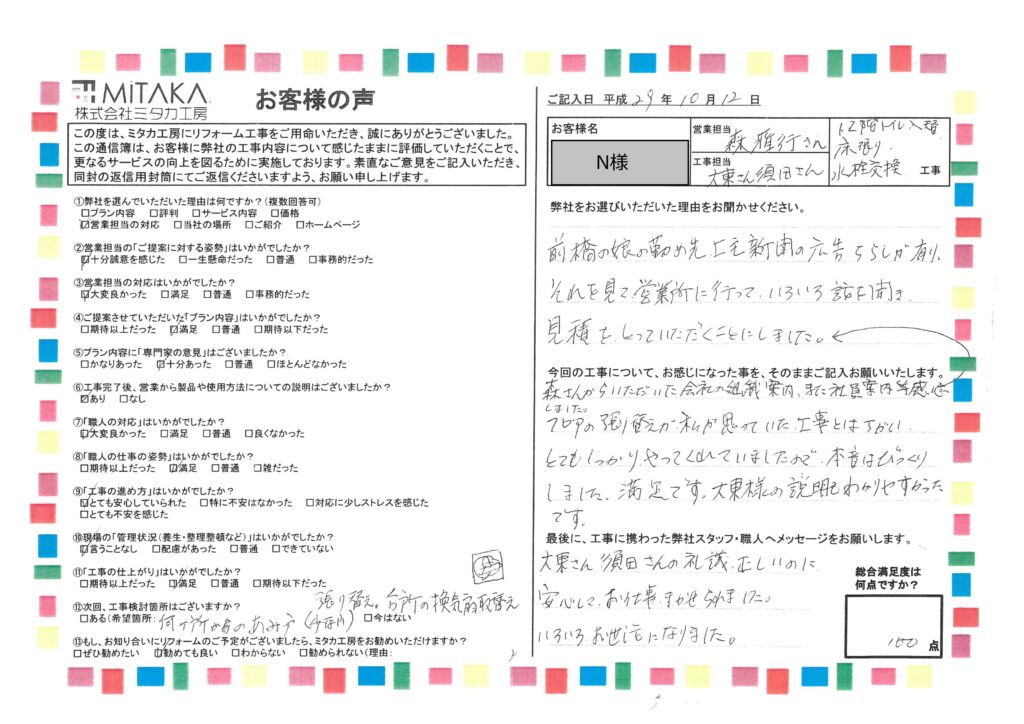 MiTAKA
株式会社ミタカ工房
お客様の声
この度は、ミタカ工房にリフォーム工事をご用命いただき、誠にありがとうございました。
この通信簿は、お客様に弊社の工事内容について感じたままに評価していただくことで、
更なるサービスの向上を図るために実施しております。素直なご意見をご記入いただき、
同封の返信用封筒にてご返信くださいますよう、お願い申し上げます。
①弊社を選んでいただいた理由は何ですか?(複数回答可)
□プラン内容 □評判 □サービス内容 □価格
☑営業担当の対応 □当社の場所 □ご紹介 □ホームページ
②営業担当の「ご提案に対する姿勢」はいかがでしたか?
☑十分誠意を感じた □一生懸命だった □普通 □事務的だった
③営業担当の対応はいかがでしたか?
☑大変良かった □満足 □普通 □事務的だった
④ご提案させていただいた「プラン内容」はいかがでしたか?
□期待以上だった ☑満足 □普通 □期待以下だった
⑤プラン内容に「専門家の意見」はございましたか?
□かなりあった ☑十分あった □普通 □ほとんどなかった
⑥工事完了後、営業から製品や使用方法についての説明はございましたか?
☑あり □なし
⑦「職人の対応」はいかがでしたか?
☑大変良かった □満足 □普通 □良くなかった
⑧「職人の仕事の姿勢」はいかがでしたか?
□期待以上だった ☑満足 □普通 □雑だった
⑨「工事の進め方」はいかがでしたか?
☑とても安心していられた □特に不安はなかった □対応に少しストレスを感じた
□とても不安を感じた
⑩現場の「管理状況(養生・整理整頓など)」はいかがでしたか?
☑言うことなし □配慮があった □普通 □できていない
⑪「工事の仕上がり」はいかがでしたか?
□期待以上だった ☑満足 □普通 □期待以下だった
⑫次回、工事検討箇所はございますか?
張り替え。台所の換気扇取替え
□ある(希望箇所: 何ヶ所かのあみ戸 □今はない
⑬もし、お知り合いにリフォームのご予定がございましたら、ミタカ工房をお勧めいただけますか?
□ぜひ勧めたい ☑勧めても良い □わからない □勧められない(理由:
ご記入日 平成 29 年 10 月 12 日
お客様名
N様
営業担当
森 雅行さん
工事担当
大東さん須田さん
トイレ入替
床張り
水栓交換 工事
弊社をお選びいただいた理由をお聞かせください。
前橋の娘の勤め先上毛新聞の広告ちらしが有り、
それを見て営業所に行って、いろいろ話を聞き
見積をとっていただくことにしました。
今回の工事について、お感じになった事を、そのままご記入お願いいたします。
森さんからいただいた会社の組織案内、また社員案内等感心
しました。
フロアの張り替えが私が思っていた工事とはちがい、
とてもしっかりやってくれていましたので、本音はびっくり
しました。満足です。大東様の説明もわかりやすかった
です。
最後に、工事に携わった弊社スタッフ・職人へメッセージをお願いします。
大東さん須田さんの礼議正しいのに
安心して、お仕事まかせられました。
いろいろお世話になりました。
総合満足度は
何点ですか?
100 点